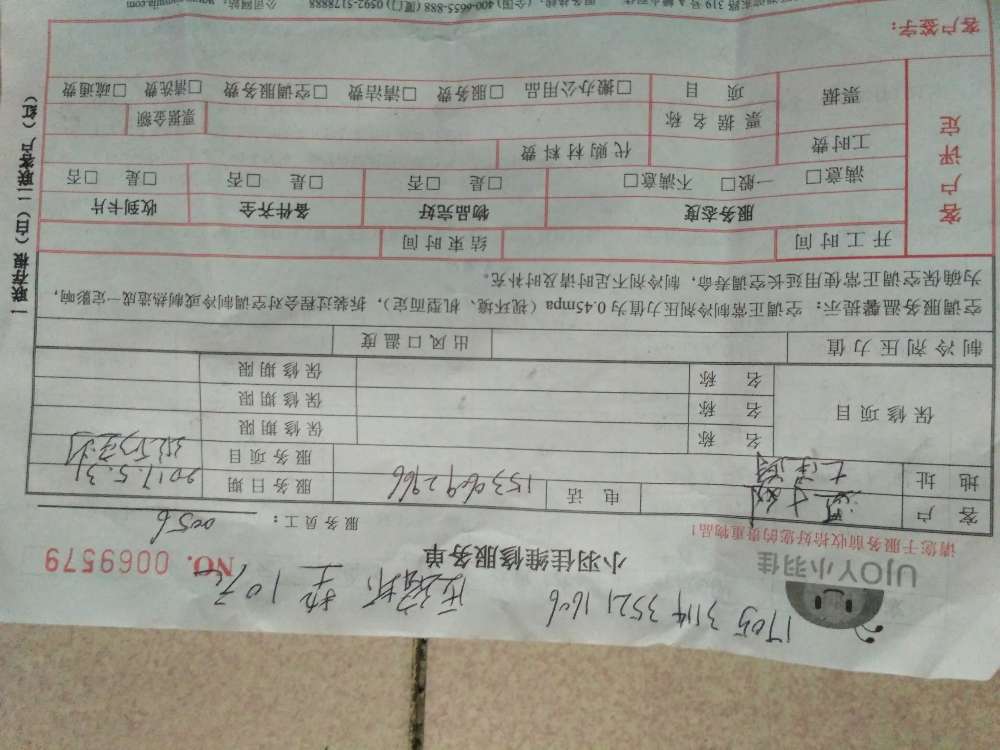 1705 3114 3521 1606
UJOY小羽佳
小羽佳维修服务单
NO. 0069579
请您于服务前收拾好您的贵重物品!
服务员工: 0056
客 户 电 话 服务日期 2017.5.31
地 址 服务项目
保修项目
名 称 保修期限
名 称 保修期限
名 称 保修期限
制冷剂压力值 出风口温度
空调服务温馨提示: 空调正常制冷剂压力值为0.45mpa(视环境、机型而定),拆装过程会对空调制冷或制热造成一定影响,
为确保空调正常使用延长空调寿命,制冷剂不足时请及时补充。
客户评定
开工时间 结束时间
服务态度 物品完好 备件齐全 收到卡片
满意□ 一般□ 不满意□ □是 □否 □是 □否 □是 □否
工时费 代购材料费
票据 票据名称 票据金额
项 目 □搬办公用品 □服务费 □清洁费 □空调服务费 □清洗费 □疏通费
客户签字:
一联存根(白)二联客户(红)
(全国)400-6655-888 (厦门)0592-5178888